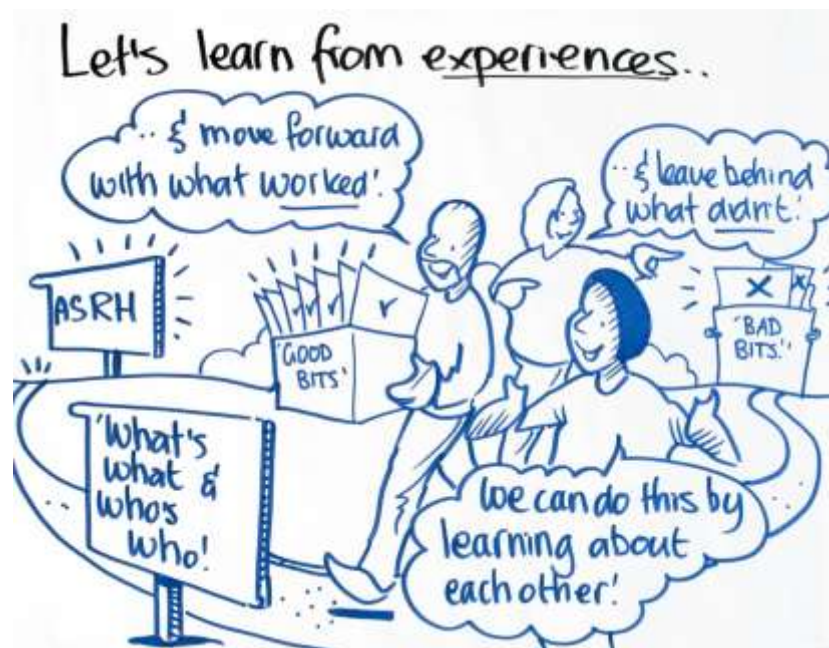 Let's learn from experiences..
... & move forward
with what worked'.
... & leave behind
what didn't.'
ASRH
'GOOD
BITS'
'BAD
BITS.'
'What's
what &
who's
who!
We can do this by
learning about
each other!'